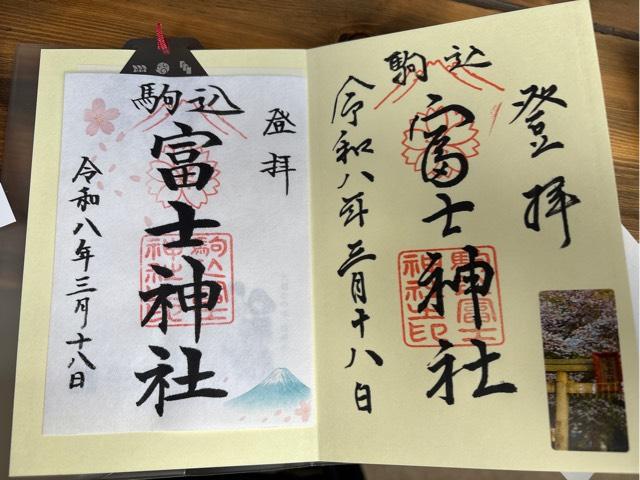 駒込
登拝
富士神社
令和八年三月十八日
駒込富士神社印
駒込
登拝
富士神社
令和八年三月十八日
駒込富士神社印